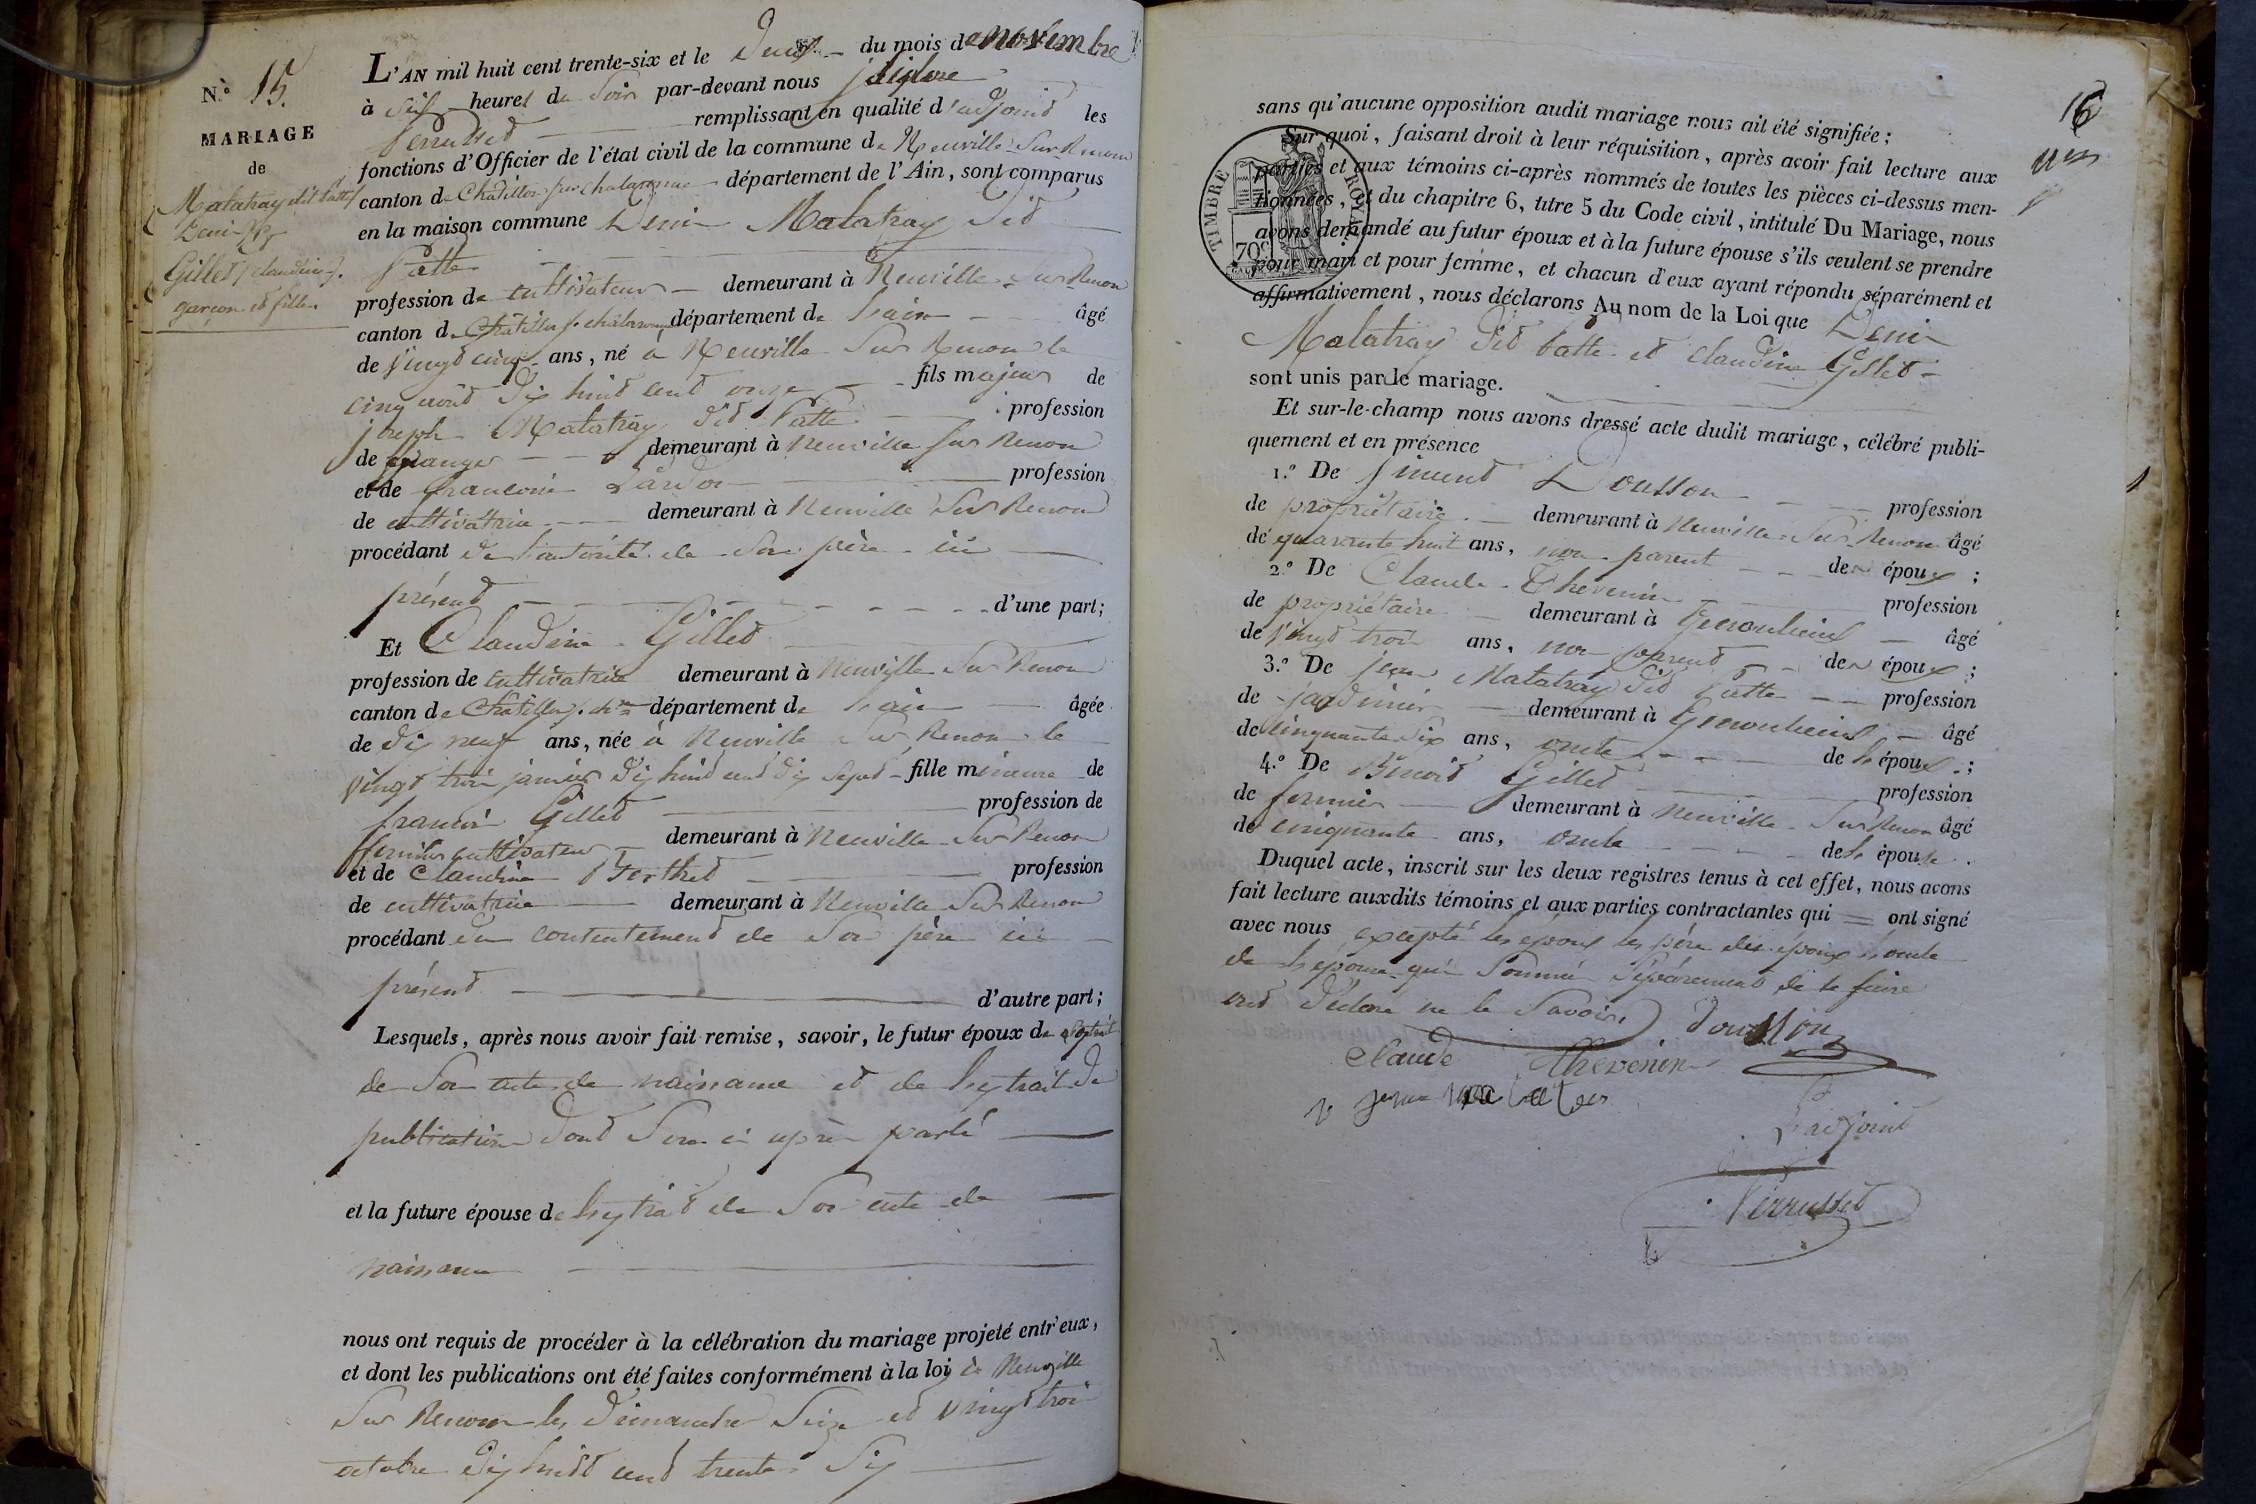 N.° 15.
MARIAGE
de
Matatray dit Patte
Deni
Gillet claudine
garçon et fille.
L'AN mil huit cent trente-six et le deux du mois de novembre
à six heures du Soir par-devant nous
Perrusset remplissant en qualité d'adjoint les
fonctions d'Officier de l'état civil de la commune de Neuville Sur Renom
canton de Chatillon sur chalaronne département de l'Ain, sont comparus
en la maison commune Deni Matatray dit
Patte
profession de cultivateur demeurant à Neuville Sur Renom
canton de Chatillon s. chalaronne département de Lain âgé
de vingt cinq ans, né à Neuville Sur Renom le
cinq aout dix huit cent onze fils majeur de
joseph Matatray dit Patte profession
de granger demeurant à Neuville Sur Renom
et de francoise Dardon profession
de cultivatrice demeurant à Neuville Sur Renom
procédant de lautorité de Son père ici
présent d'une part;
Et Claudine Gillet
profession de cultivatrice demeurant à Neuville Sur Renom
canton de Chatillon s. ch.ne département de Lain âgée
de dix neuf ans, née à Neuville Sur Renom le
vingt troi janvier dix huit cent dix Sept fille mineure de
francoi Gillet profession de
fermier cultivateur demeurant à Neuville Sur Renom
et de Claudine Berthet profession
de cultivatrice demeurant à Neuville Sur Renom
procédant du contentement de Son père ici
présent d'autre part;
Lesquels, après nous avoir fait remise, savoir, le futur époux de lextrait
de Son acte de naissance et de lextrait de
publication dont Sera ci après parlé
et la future épouse de lextrait de Son acte de
naissance
nous ont requis de procéder à la célébration du mariage projeté entr'eux,
et dont les publications ont été faites conformément à la loi à Neuville
Sur Renom les dimanche Seize et vingt troi
octobre dix huit cent trente Six
16
sans qu'aucune opposition audit mariage nous ait été signifiée;
Sur quoi, faisant droit à leur réquisition, après avoir fait lecture aux
parties et aux témoins ci-après nommés de toutes les pièces ci-dessus men-
tionnées, et du chapitre 6, titre 5 du Code civil, intitulé Du Mariage, nous
avons demandé au futur époux et à la future épouse s'ils veulent se prendre
pour mari et pour femme, et chacun d'eux ayant répondu séparément et
affirmativement, nous déclarons Au nom de la Loi que Deni
TIMBRE ROYAL
70c
Matatray dit Patte et claudine Gillet
sont unis par le mariage.
Et sur-le-champ nous avons dressé acte dudit mariage, célébré publi-
quement et en présence
1.° De Vincent Dousson profession
de propriétaire demeurant à Neuville Sur Renom âgé
de quarante huit ans, non parent des époux;
2.° De Claude Thevenin profession
de propriétaire demeurant à Genouleux âgé
de vingt troi ans, non parent des époux;
3.° De jean Matatray dit Patte profession
de jardinier demeurant à Genouleux âgé
de cinquante Six ans, oncle de lépoux;
4.° De Benoit Gillet profession
de fermier demeurant à Neuville Sur Renom âgé
de cinquante ans, oncle de lépouse.
Duquel acte, inscrit sur les deux registres tenus à cet effet, nous avons
fait lecture auxdits témoins et aux parties contractantes qui ont signé
avec nous excepté les epoux les père des epoux loncle
de lepouse qui Sommé Séparément de le faire
ont déclaré ne le Savoir, Dousson
Claude Thevenin
Ladjoint
Perrusset